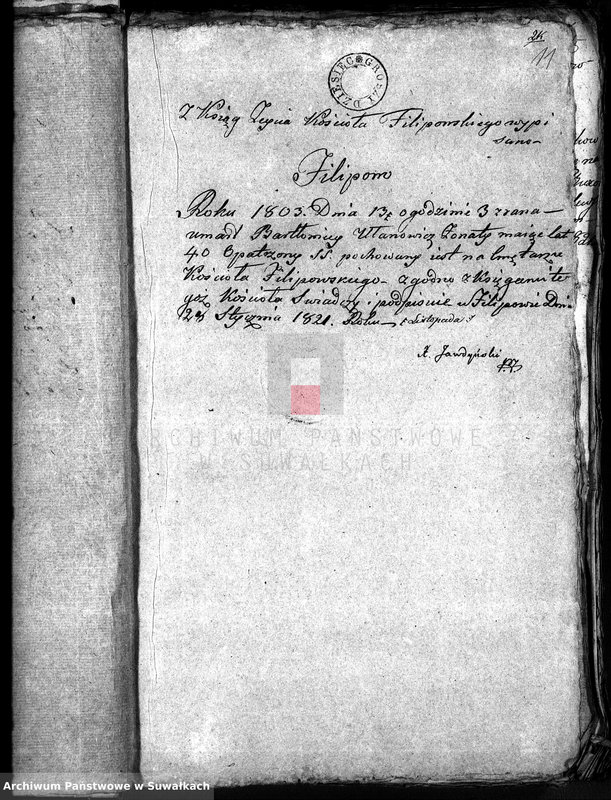 24
11
DZIESIĘC GROSZY
Z Xsiąg Zeyścia Kościoła Filipowskiego wypi
sano
Filipow
Roku 1803. Dnia 13g o godzinie 3 z rana
umarł Bartłomiey Ulanowicz Żonaty maiąc lat
40 Opatrzony SS. pochowany iest na Cmętarzu
Kościoła Filipowskiego zgodno z Księgami te
goż Kościoła Swiadczę i podpisuię w Filipowie Dnia
24 Stycznia 1821. Roku Listopada
A. Jawdyński
ARCHIWUM PAŃSTWOWE
W SUWAŁKACH
Archiwum Państwowe w Suwałkach